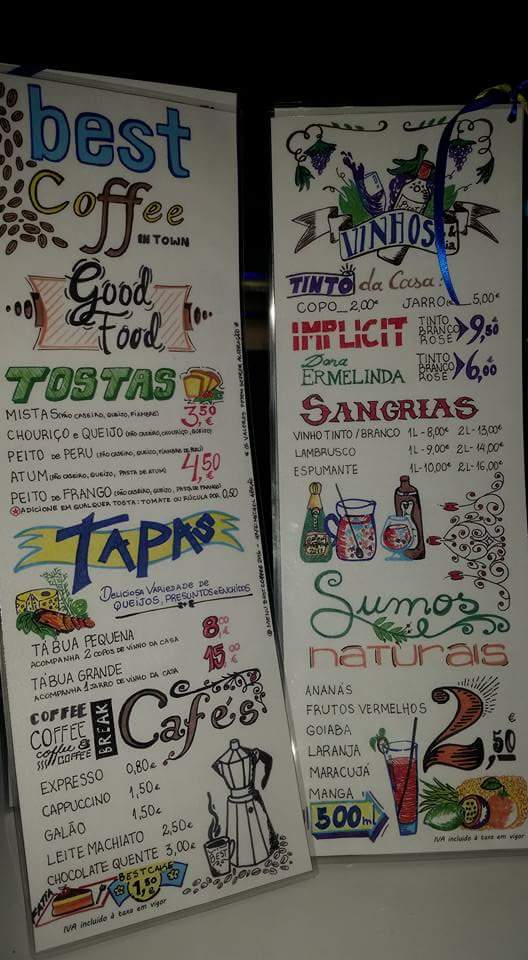 best
Coffee
IN TOWN
Good
Food
TOSTAS
MISTAS (PÃO CASEIRO, QUEIJO, FIAMBRE)
3,50 €
CHOURIÇO e QUEIJO (PÃO CASEIRO, CHOURIÇO, QUEIJO)
PEITO DE PERU (PÃO CASEIRO, QUEIJO, FIAMBRE DE PERU)
ATUM (PÃO CASEIRO, QUEIJO, PASTA DE ATUM)
4,50 €
PEITO DE FRANGO (PÃO CASEIRO, QUEIJO, PASTA DE FRANGO)
ADICIONE EM QUALQUER TOSTA: TOMATE OU RÚCULA POR 0,50
TAPAS
DELICIOSA VARIEDADE DE
QUEIJOS, PRESUNTOS e ENCHIDOS
TÁBUA PEQUENA 8,00 €
ACOMPANHA 2 COPOS DE VINHO DA CASA
TÁBUA GRANDE 15,00 €
ACOMPANHA 1 JARRO DE VINHO DA CASA
COFFEE
COFFEE
coffee &
COFFEE
BREAK
Cafés
EXPRESSO 0,80€
CAPPUCCINO 1,50€
GALÃO 1,50€
LEITE MACHIATO 2,50€
CHOCOLATE QUENTE 3,00€
BEST
FATIA
BEST CAKE
1,50 €
IVA incluido à taxa em vigor
VINHOS
& Cia
TINTO da Casa:
COPO_2,00€ JARRO_5,00€
IMPLICIT
TINTO
BRANCO
ROSÉ
9,50 €
Dona
ERMELINDA
TINTO
BRANCO
ROSÉ
6,00 €
SANGRIAS
VINHO TINTO/BRANCO 1L-8,00€ 2L-13,00€
LAMBRUSCO 1L-9,00€ 2L-14,00€
ESPUMANTE 1L-10,00€ 2L-16,00€
Sumos
naturais
ANANÁS
FRUTOS VERMELHOS
GOIABA
LARANJA
MARACUJÁ
MANGA
2,50 €
500ml
IVA incluido à taxa em vigor